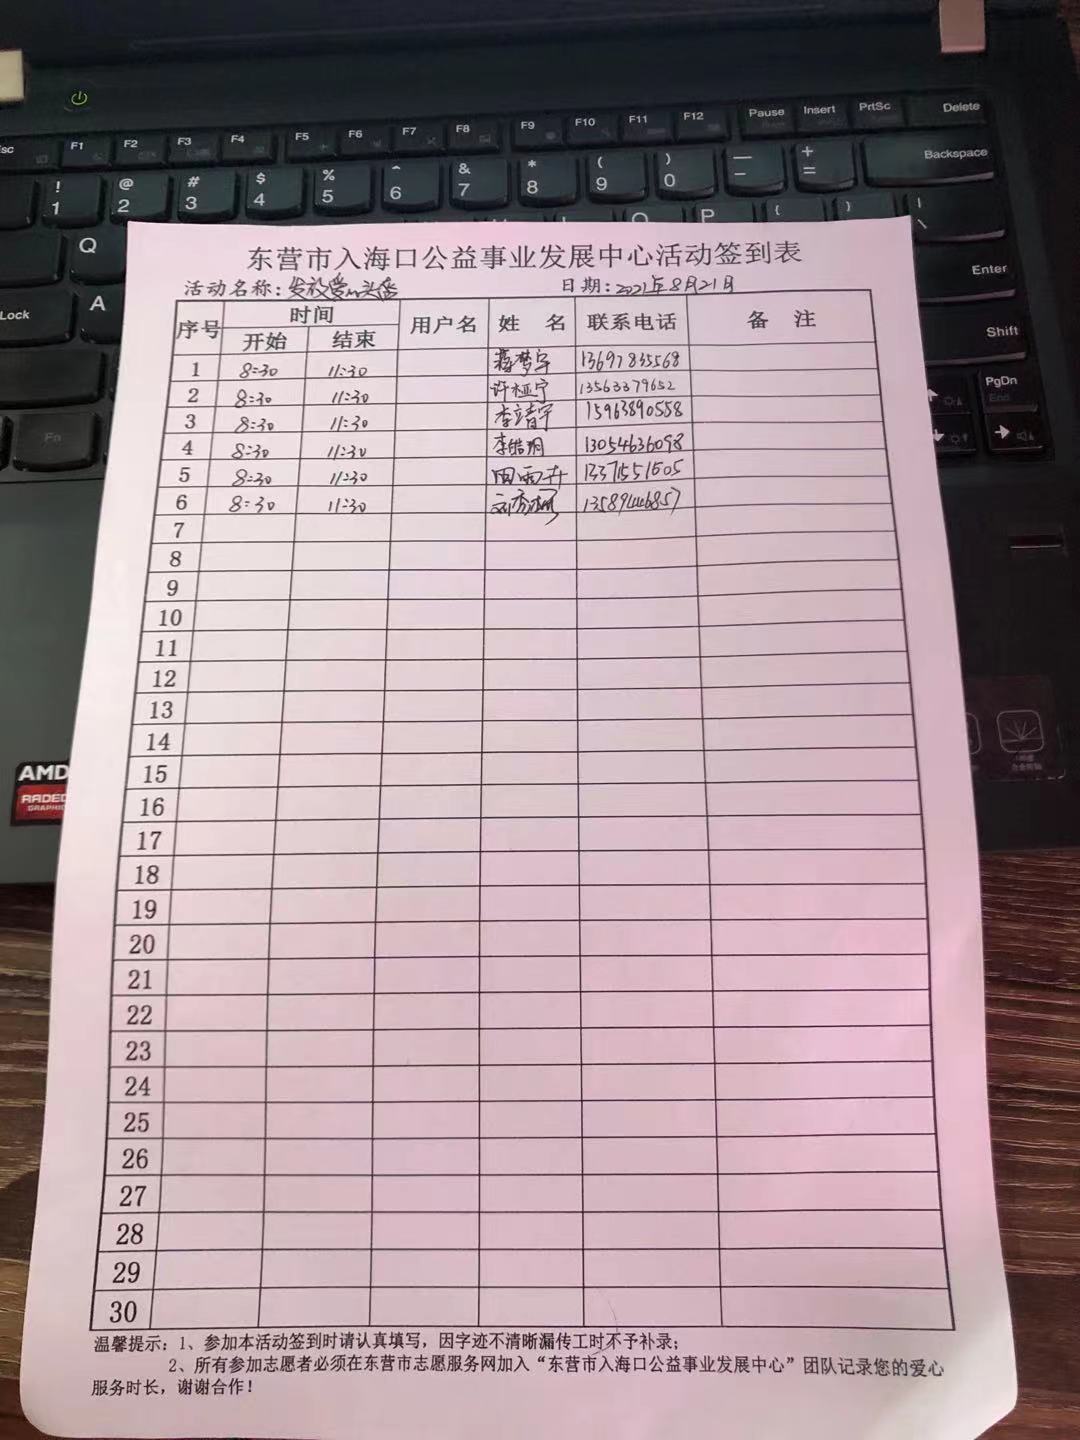 Esc F1 F2 F3 F4 F5 F6 F7 F8 F9 F10 F11 F12 Pause Insert PrtSc Delete
! 1 @ 2 # 3 $ 4 % 5 ^ 6 & 7 * 8 ( 9 ) 0 — - + = Backspace
Q O P { } | \
Enter
Lock A
Shift
Fn
PgDn
End
东营市入海口公益事业发展中心活动签到表
活动名称:发放爱心头盔 日期:2021年8月21日
序号 时间 用户名 姓 名 联系电话 备 注
开始 结束
1 8:30 11:30 蒋梦宇 13697835568
2 8:30 11:30 许桠宁 13563379652
3 8:30 11:30 李靖宇 15963890558
4 8:30 11:30 李皓玥 13054636098
5 8:30 11:30 田雨卉 13371551505
6 8:30 11:30 刘 13589446857
7
8
9
10
11
12
13
14
15
16
17
18
19
20
21
22
23
24
25
26
27
28
29
30
温馨提示:1、参加本活动签到时请认真填写,因字迹不清晰漏传工时不予补录;
2、所有参加志愿者必须在东营市志愿服务网加入“东营市入海口公益事业发展中心”团队记录您的爱心
服务时长,谢谢合作!
AMD
RADEON
GRAPHICS